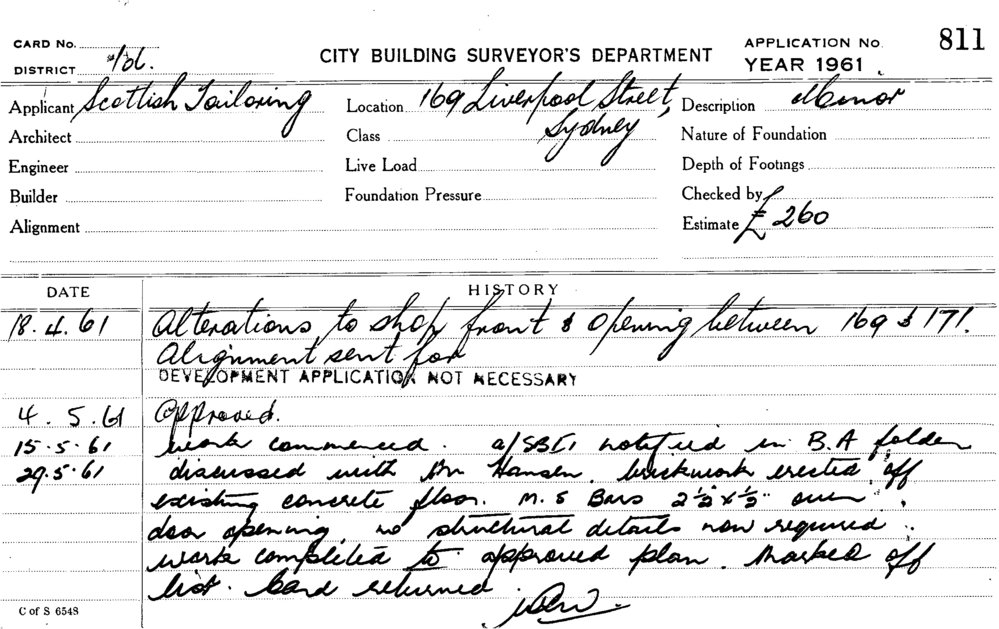 CARD No.
DISTRICT
CITY BUILDING SURVEYOR'S DEPARTMENT
APPLICATION No. 811
YEAR 1961
Applicant Scottish Tailoring
Location 169 Liverpool Street,
Sydney
Description Minor
Architect
Class
Nature of Foundation
Engineer
Live Load
Depth of Footings
Builder
Foundation Pressure
Checked by
Alignment
Estimate £ 260
DATE
HISTORY
18.4.61 Alterations to shop front & opening between 169 & 171.
Alignment sent for
DEVELOPMENT APPLICATION NOT NECESSARY
4.5.61 Approved.
15.5.61 work commenced. notified in B.A folder
29.5.61 discussed with Mr Hansen, brickwork erected off
existing concrete floor. M.S Bars 2½ x ½" over
door opening, no structural details now required.
work completed to approved plan. Marked off
list. Card returned.
C of S 6548